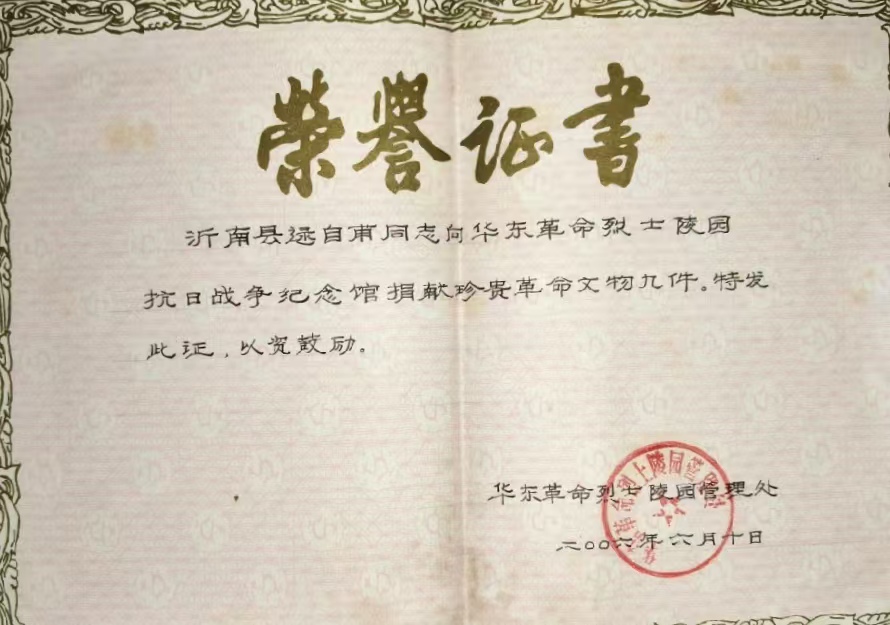 榮譽证書
沂南县逯自甫同志向华东革命烈士陵园
抗日战争纪念馆捐献珍贵革命文物九件。特发
此证，以资鼓励。
华东革命烈士陵园管理处
二〇〇六年六月十日